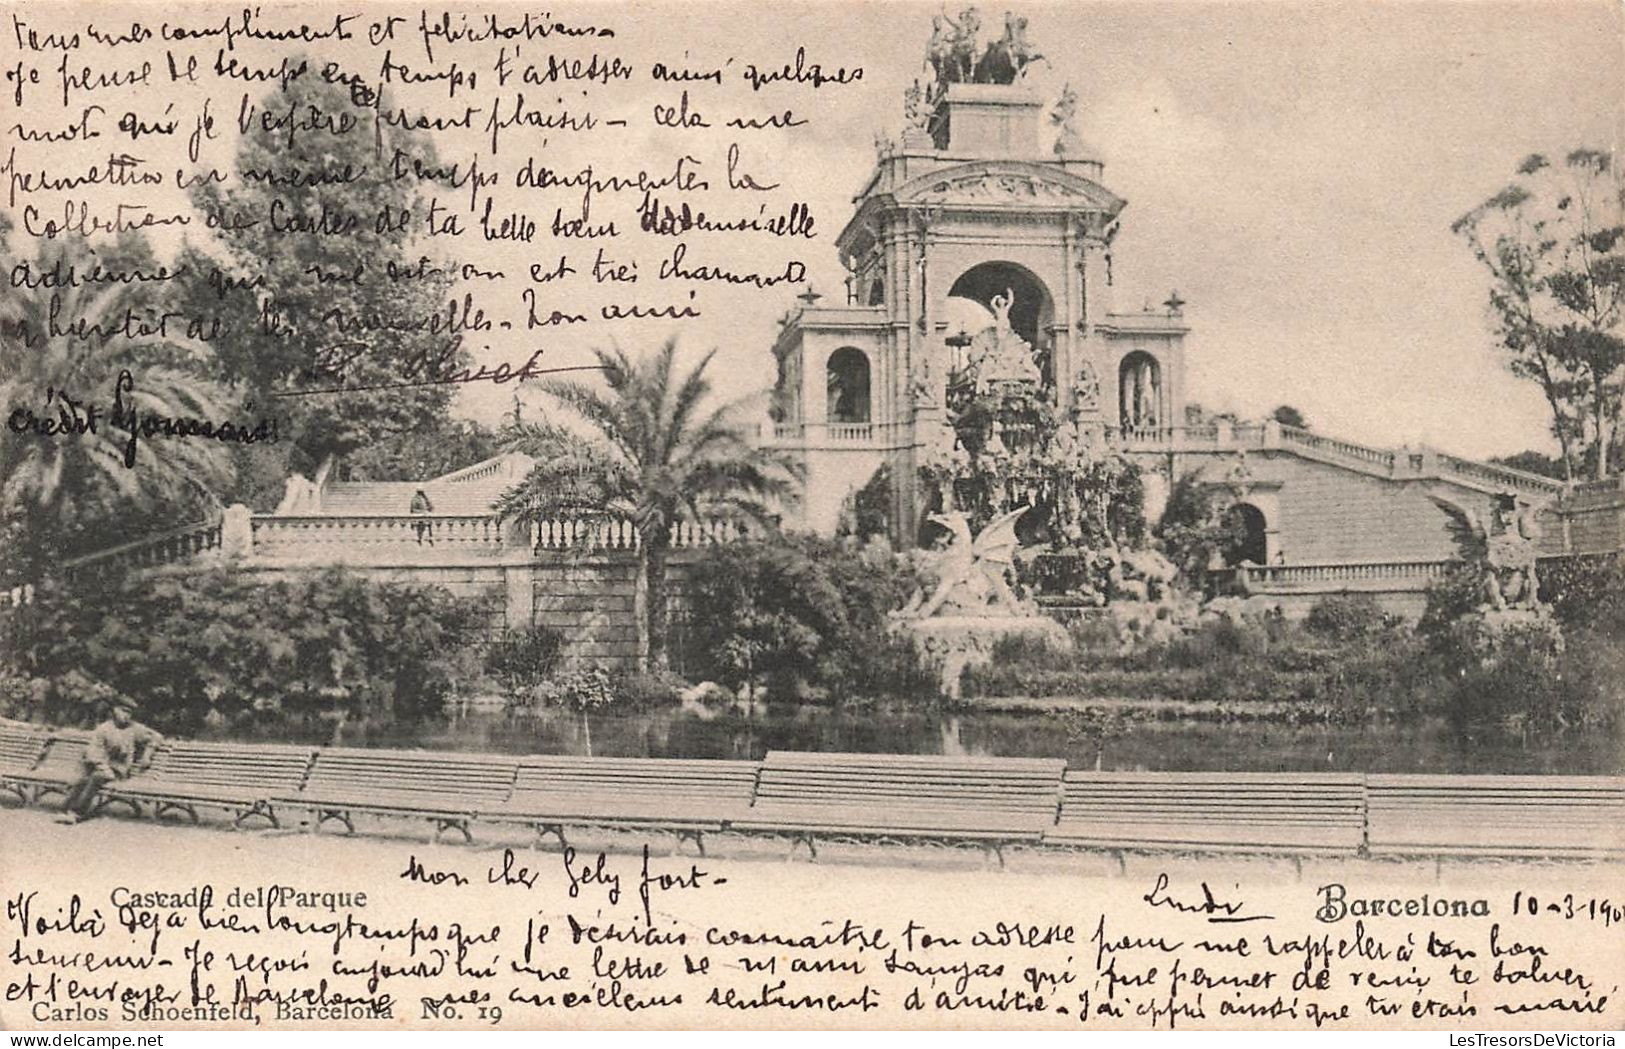 tous mes compliments et félicitations -
Je pense de temps en temps t'adresser ainsi quelques
mots qui je l'espère te feront plaisir - cela me
permettra en même temps d'augmenter la
Collection de Cartes de ta belle sœur Mademoiselle
Adrienne qui me dit on est très charmante
a bientôt de tes nouvelles - Ton ami
Olivet
crédit Lyonnais
Mon cher Gely fort -
Cascada del Parque
Lundi
Barcelona
10-3-190
Voilà déjà bien longtemps que je désirais connaître ton adresse pour me rappeler à ton bon
souvenir - Je reçois aujourd'hui une lettre de m' ami qui me permet de venir te saluer
et t'envoyer de Barcelone mes anciens sentiments d'amitié - J'ai appris ainsi que tu étais marié
Carlos Schoenfeld, Barcelona No. 19
LesTresorsDeVictoria